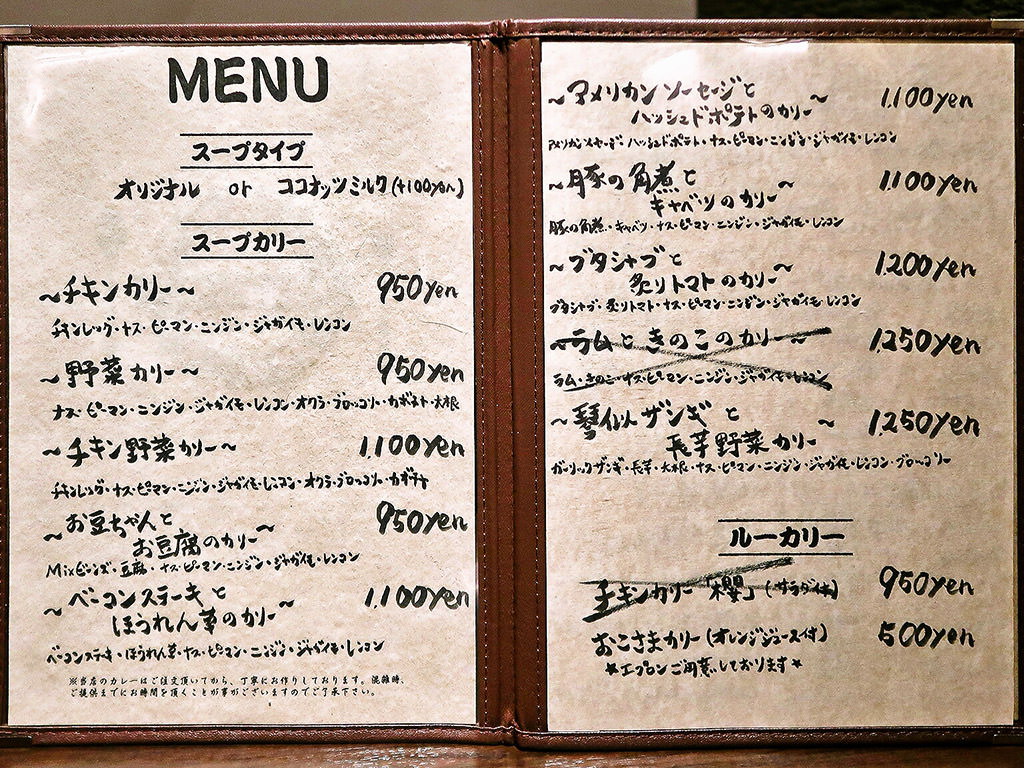 MENU
スープタイプ
オリジナル or ココナッツミルク(+100yen)
スープカリー
～チキンカリー～ 950yen
チキンレッグ・ナス・ピーマン・ニンジン・ジャガイモ・レンコン
～野菜カリー～ 950yen
ナス・ピーマン・ニンジン・ジャガイモ・レンコン・オクラ・ブロッコリー・カボチャ・大根
～チキン野菜カリー～ 1.100yen
チキンレッグ・ナス・ピーマン・ニンジン・ジャガイモ・レンコン・オクラ・ブロッコリー・カボチャ
～お豆ちゃんと
お豆腐のカリー～ 950yen
Mixビーンズ・豆腐・ナス・ピーマン・ニンジン・ジャガイモ・レンコン
～ベーコンステーキと
ほうれん草のカリー～ 1.100yen
ベーコンステーキ・ほうれん草・ナス・ピーマン・ニンジン・ジャガイモ・レンコン
※当店のカレーはご注文頂いてから、丁寧にお作りしております。混雑時、
ご提供までにお時間を頂くことが事がございますのでご了承下さい。
～アメリカンソーセージと
ハッシュドポテトのカリー～ 1.100yen
アメリカンソーセージ・ハッシュドポテト・ナス・ピーマン・ニンジン・ジャガイモ・レンコン
～豚の角煮と
キャベツのカリー～ 1.100yen
豚の角煮・キャベツ・ナス・ピーマン・ニンジン・ジャガイモ・レンコン
～ブタシャブと
炙りトマトのカリー～ 1.200yen
ブタシャブ・炙りトマト・ナス・ピーマン・ニンジン・ジャガイモ・レンコン
～ラムときのこのカリー～ 1.250yen
ラム・きのこ・ナス・ピーマン・ニンジン・ジャガイモ・レンコン
～琴似ザンギと
長芋野菜カリー～ 1.250yen
ガーリックザンギ・長芋・大根・ナス・ピーマン・ニンジン・ジャガイモ・レンコン・ブロッコリー
ルーカリー
チキンカリー「櫻」(サラダ付) 950yen
おこさまカリー(オレンジジュース付) 500yen
★エプロンご用意しております★